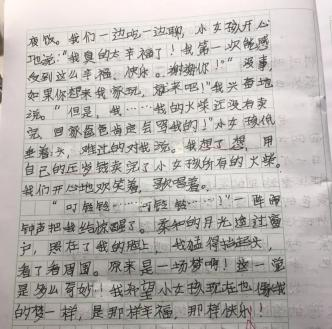 夜饭。我们一边吃一边聊,小女孩开心
地说:“我真的太幸福了!我第一次能感
受到这么幸福、快乐。谢谢你!”“没事
如果你想来我家玩,就来吧!”我兴奋地
说。“但是,我……我的火柴还没有卖
完,回家爸爸肯定会骂我的!”小女孩低
垂着头,难过的对我说。我想了想,用
自己的压岁钱卖完了小女孩所有的火柴。
我们开心地欢笑着,歌唱着。
“叮铃铃……叮铃铃……!”一阵闹
钟声把我给惊醒了。柔和的月光透过窗
户,照在了我的脸上,我猛得抬起头,
看了看周围。原来是一场梦啊!这一觉
是多么奇妙!我希望小女孩现在也像我
的梦一样,是那样幸福,那样快乐!